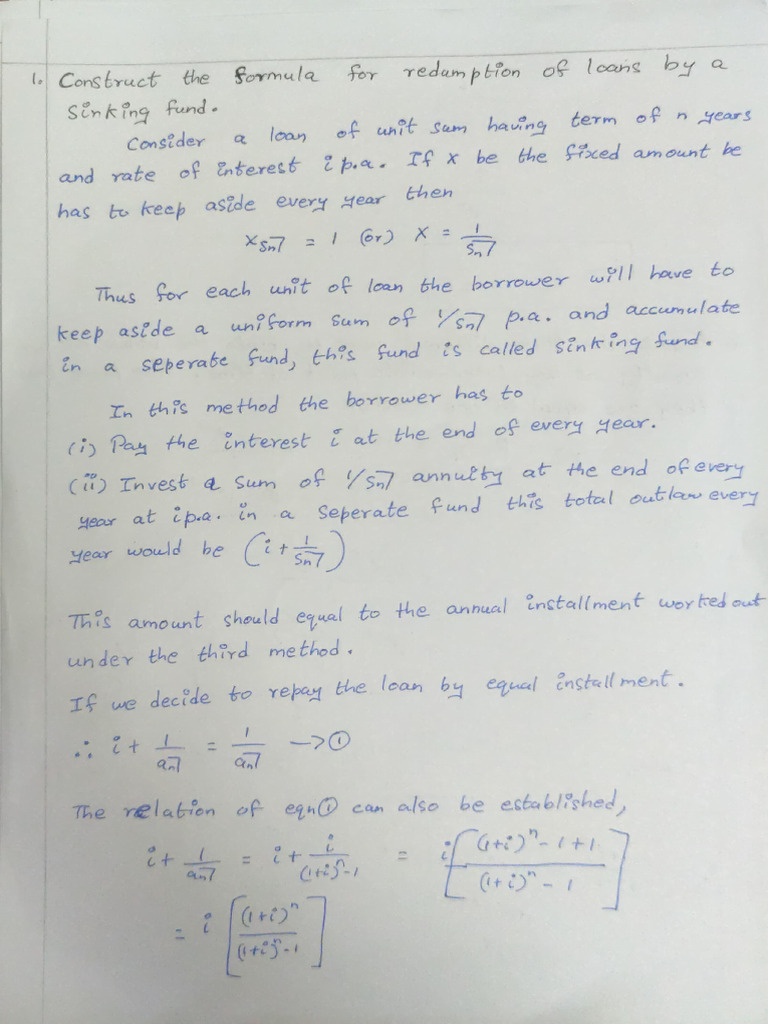 1. Construct the formula for redumption of loans by a
sinking fund.
Consider a loan of unit sum having term of n years
and rate of interest i p.a. If x be the fixed amount be
has to keep aside every year then
x sn̅| = 1 (or) x = 1/sn̅|
Thus for each unit of loan the borrower will have to
keep aside a uniform sum of 1/sn̅| p.a. and accumulate
in a seperate fund, this fund is called sinking fund.
In this method the borrower has to
(i) Pay the interest i at the end of every year.
(ii) Invest a sum of 1/sn̅| annuity at the end of every
year at i p.a. in a seperate fund this total outlaw every
year would be (i + 1/sn̅|)
This amount should equal to the annual installment worked out
under the third method.
If we decide to repay the loan by equal installment.
∴ i + 1/an̅| = 1/an̅| → ①
The relation of eqn① can also be established,
i + 1/an̅| = i + i/(1+i)ⁿ-1 = i[(1+i)ⁿ - 1 + 1/(1+i)ⁿ - 1]
= i[(1+i)ⁿ/(1+i)ⁿ-1]